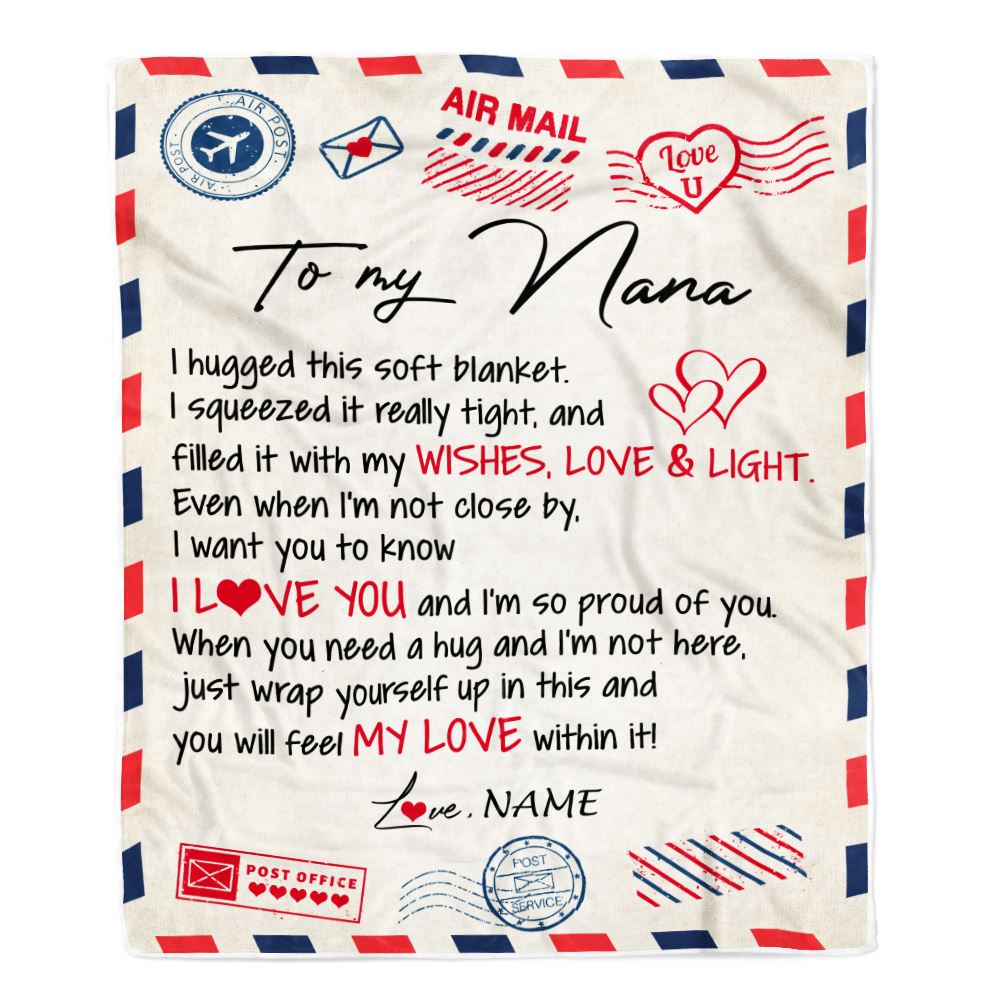 AIR POST
AIR POST
AIR POST
AIR MAIL
Love
U
To my Nana
I hugged this soft blanket.
I squeezed it really tight, and
filled it with my WISHES, LOVE & LIGHT.
Even when I'm not close by,
I want you to know
I L❤VE YOU and I'm so proud of you.
When you need a hug and I'm not here,
just wrap yourself up in this and
you will feel MY LOVE within it!
L❤ve, NAME
POST OFFICE
POST
SERVICE